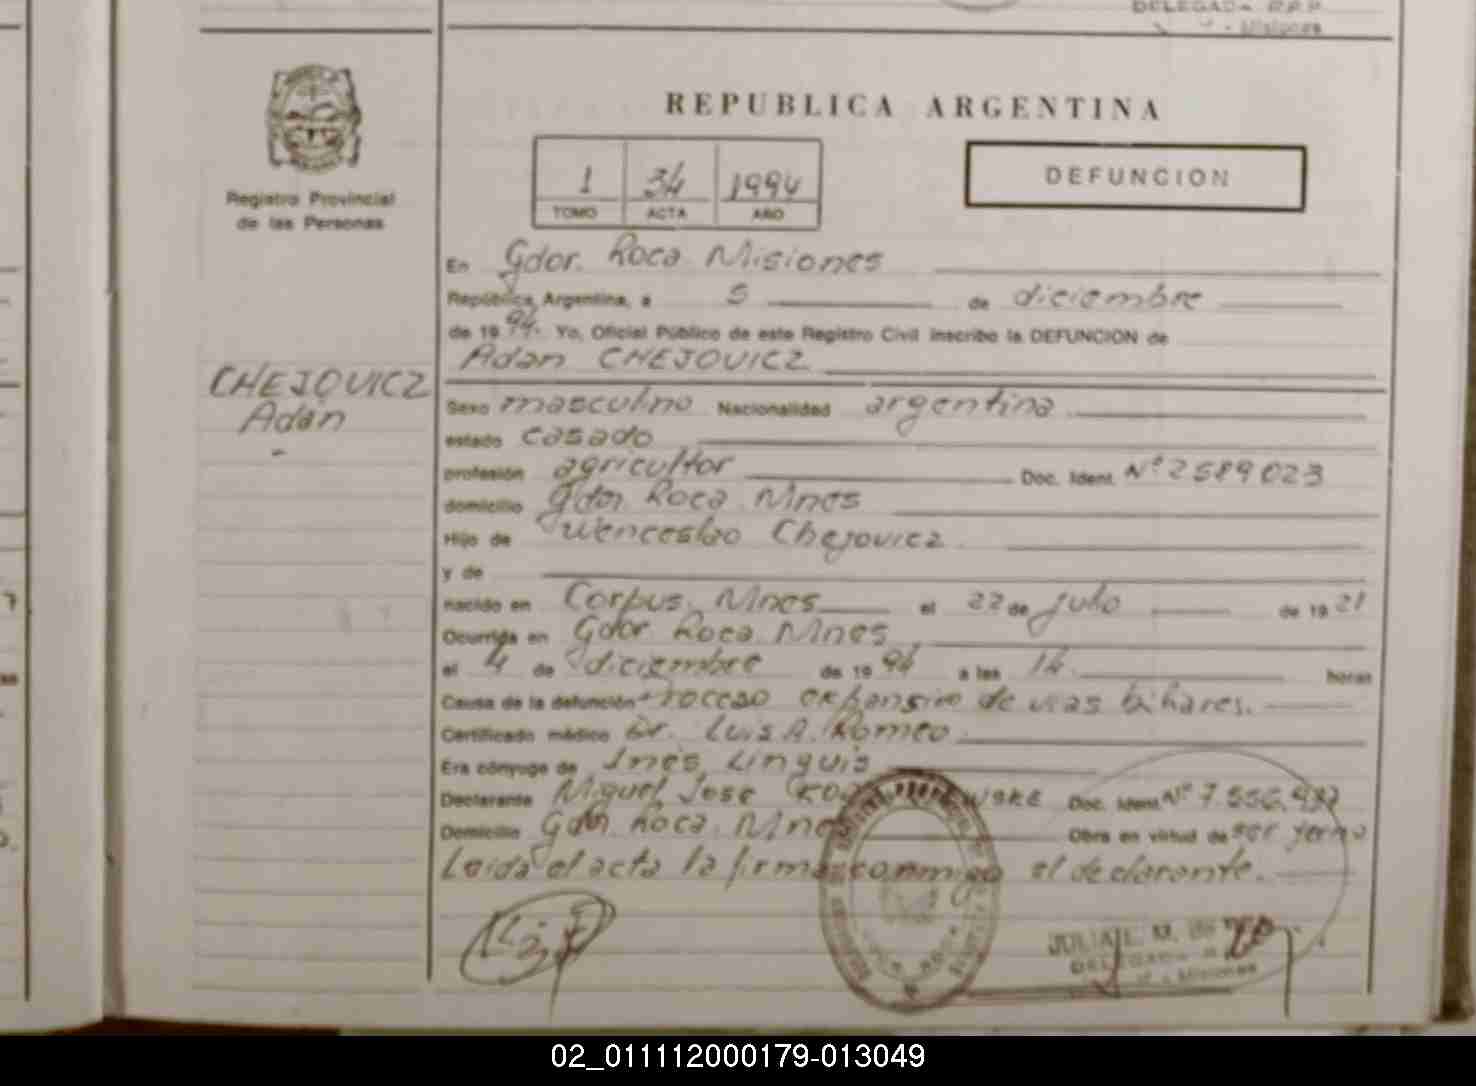 DELEGADA R.P.P.
- Misiones
REPUBLICA ARGENTINA
Registro Provincial
de las Personas
1 34 1994
TOMO ACTA AÑO
DEFUNCION
En Gdor. Roca Misiones
República Argentina, a 5 de diciembre
de 1994. Yo, Oficial Público de este Registro Civil inscribo la DEFUNCION de
Adan CHEJOVICZ
CHEJOVICZ
Adan
Sexo masculino Nacionalidad argentina
estado casado
profesión agricultor Doc. Ident. Nº 2589023
domicilio Gdor Roca Mnes
Hijo de Wenceslao Chejovicz
y de
nacido en Corpus, Mnes el 22 de julio de 1921
Ocurrida en Gdor. Roca Mnes
el 4 de diciembre de 1994 a las 14. horas
Causa de la defunción Proceso expansivo de vias biliares.
Certificado médico Dr. Luis A. Romeo
Era cónyuge de Ines Linguis
Declarante Miguel Jose Doc. Ident. Nº 7.556.
Domicilio Gdor Roca. Mnes Obra en virtud de ser yerno
Leida el acta la firma conmigo el declarante.
JULIA L. M.
DELEGADA
- Misiones
02_011112000179-013049